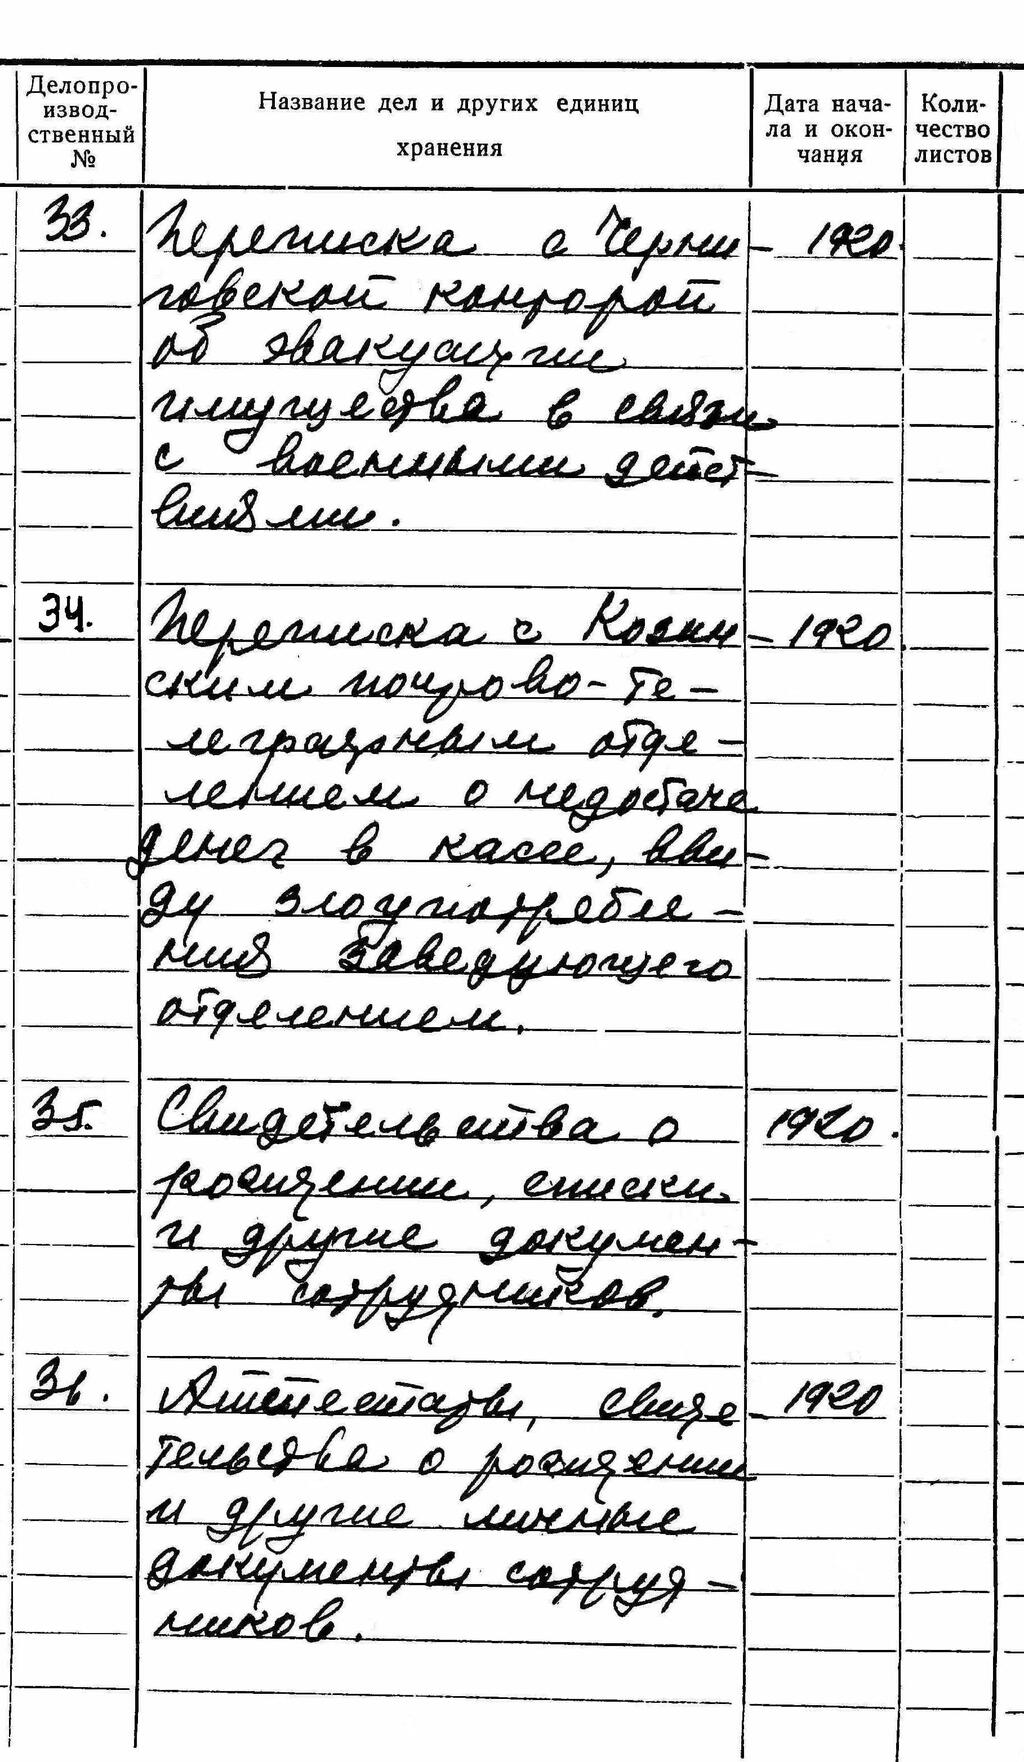 Делопро-
извод-
ственный
№
Название дел и других единиц
хранения
Дата нача-
ла и окон-
чания
Коли-
чество
листов
33. Переписка с Черни- 1920.
говской конторой
об эвакуации
имущества в связи
с военными дейст-
виями.
34. Переписка с Козин- 1920.
ским почтово-те-
леграфным отде-
лением о недостаче
денег в кассе, вви-
ду злоупотребле-
ния заведующего
отделением.
35. Свидетельства о 1920.
рождении, списки
и другие докумен-
ты сотрудников.
36. Аттестаты, свиде- 1920
тельства о рождении
и другие личные
документы сотруд-
ников.